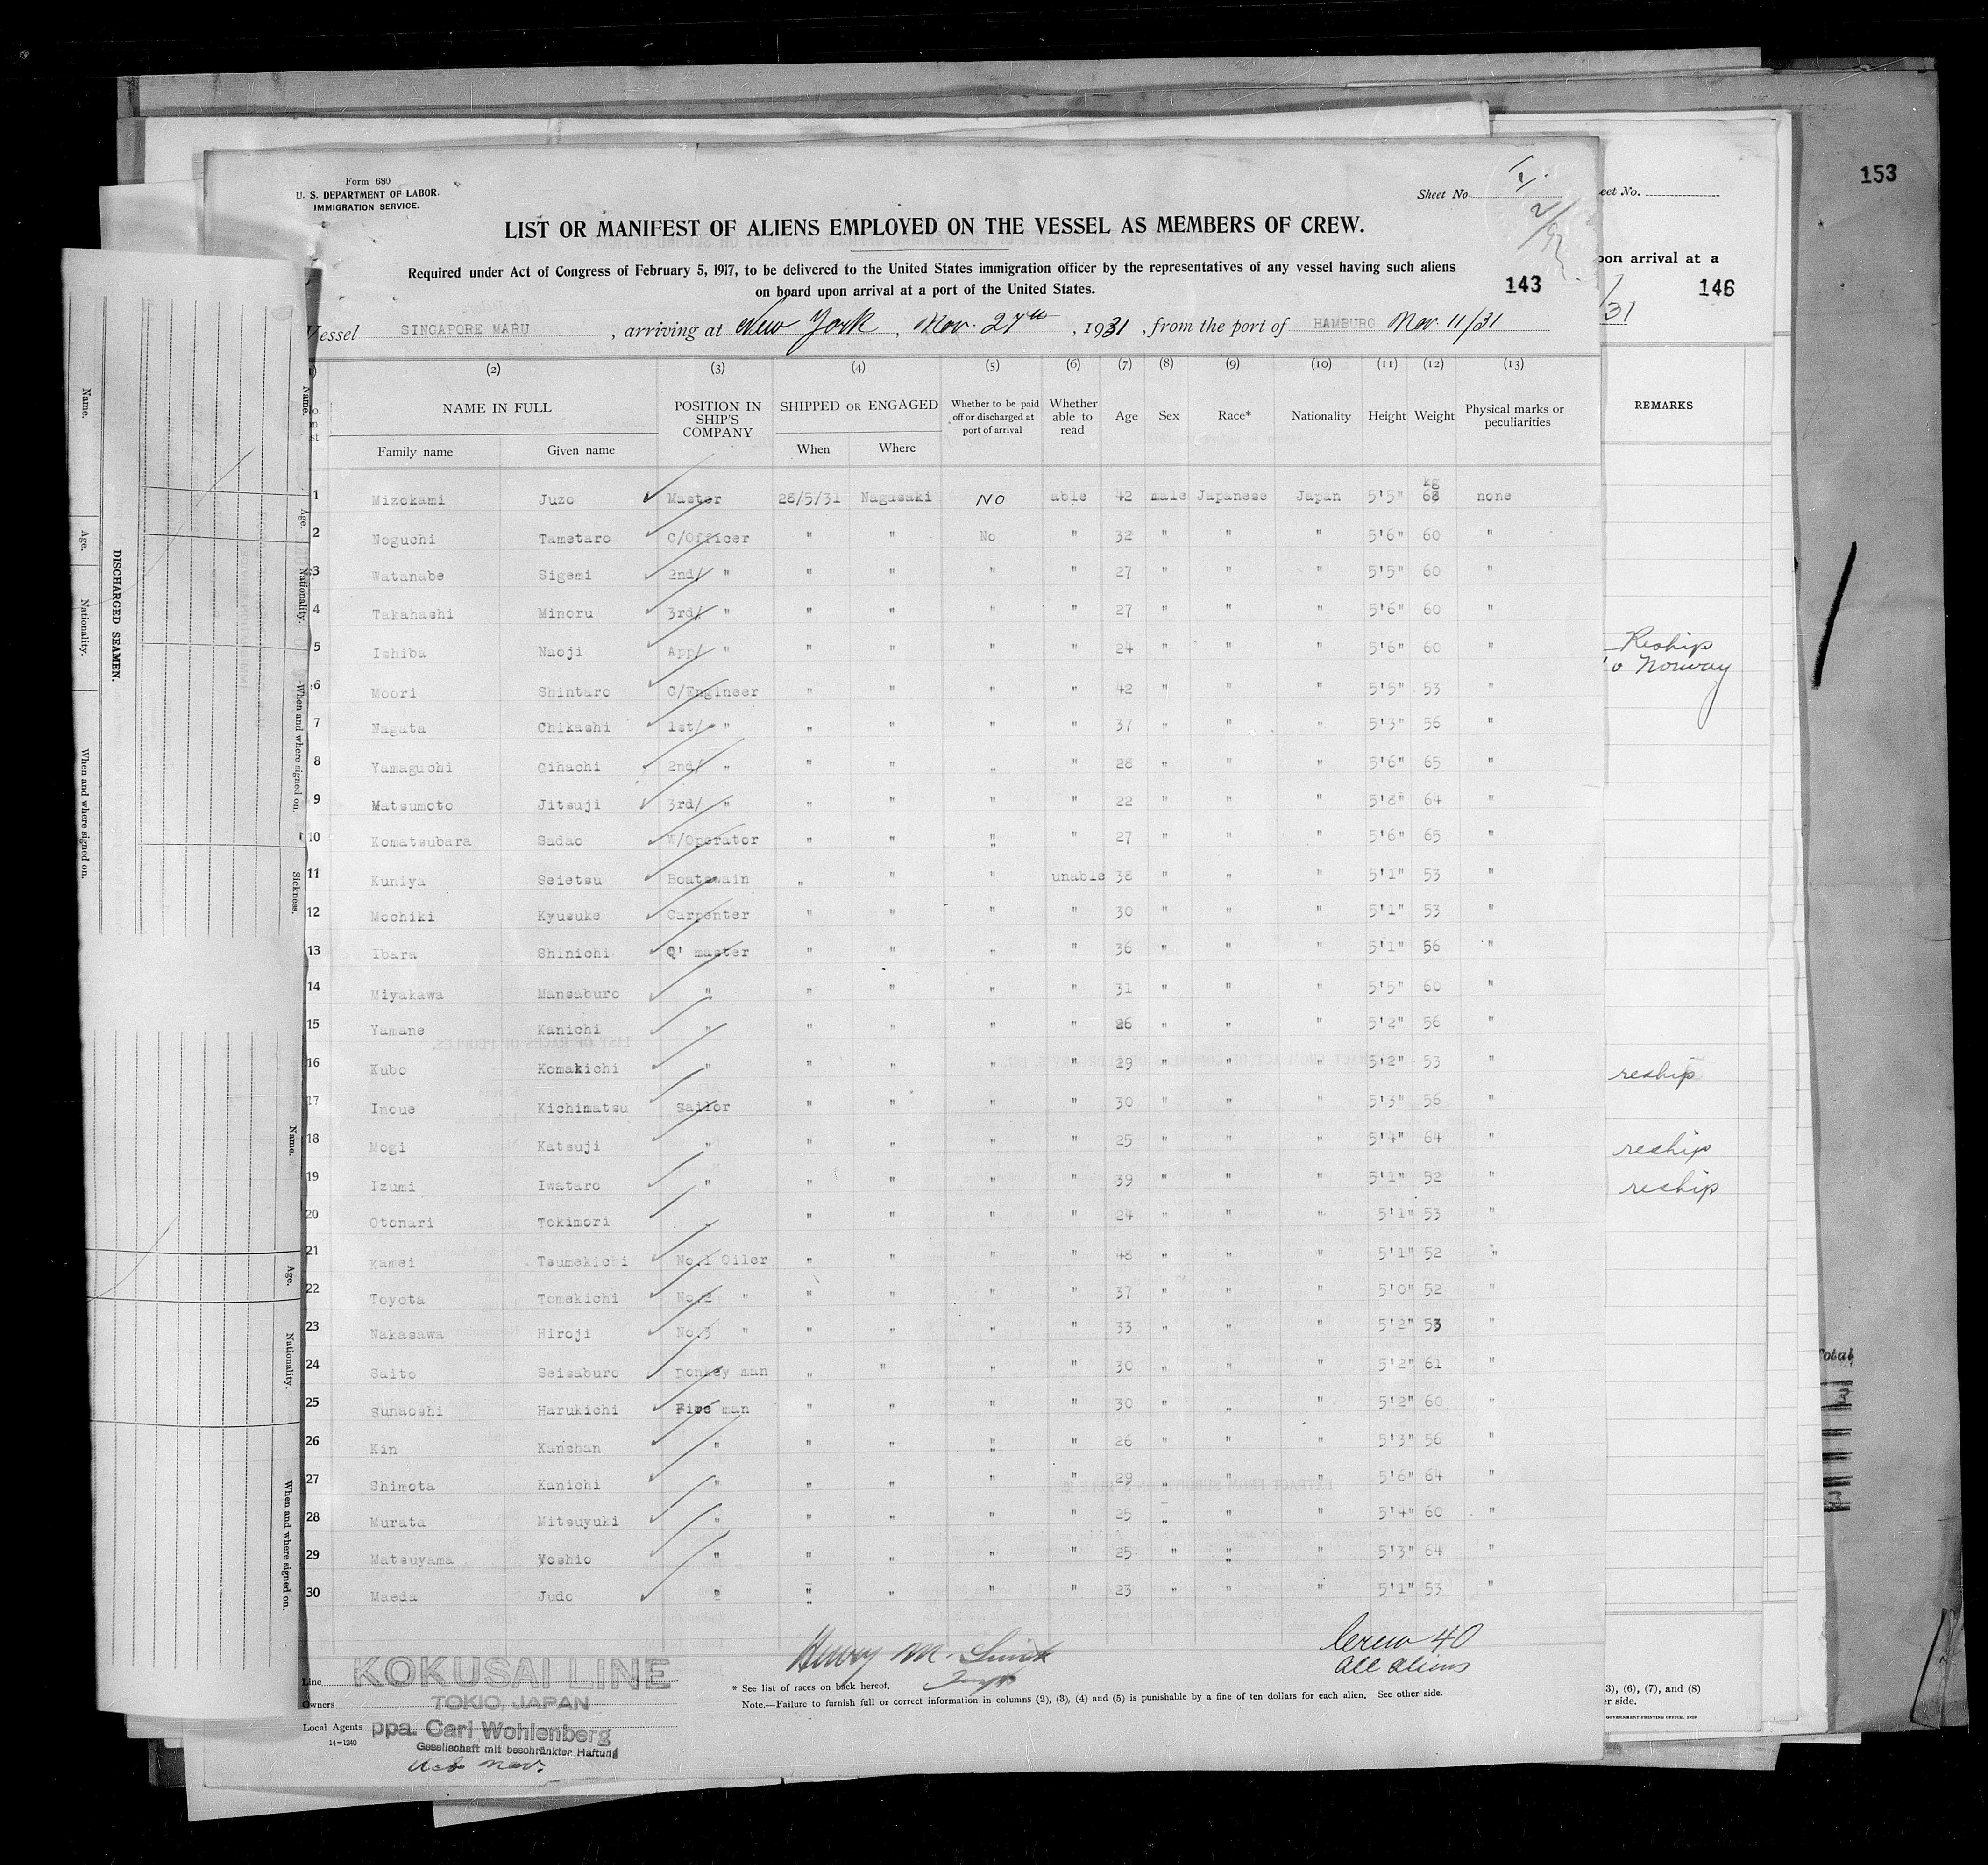 Form 680
U. S. DEPARTMENT OF LABOR.
IMMIGRATION SERVICE.
Sheet No. I.
LIST OR MANIFEST OF ALIENS EMPLOYED ON THE VESSEL AS MEMBERS OF CREW.
Required under Act of Congress of February 5, 1917, to be delivered to the United States immigration officer by the representatives of any vessel having such aliens
on board upon arrival at a port of the United States.
143
Vessel SINGAPORE MARU, arriving at New York, Nov. 27th, 1931, from the port of HAMBURG Nov 11/31
(2) (3) (4) (5) (6) (7) (8) (9) (10) (11) (12) (13)
NAME IN FULL
Family name Given name
POSITION IN SHIP'S COMPANY
SHIPPED OR ENGAGED
When Where
Whether to be paid off or discharged at port of arrival
Whether able to read
Age Sex Race* Nationality Height Weight
Physical marks or peculiarities
kg
1 Mizokami Juzo Master 28/5/31 Nagasaki NO able 42 male Japanese Japan 5'5" 68 none
2 Noguchi Tametaro C/Officer " " No " 32 " " " 5'6" 60 "
3 Watanabe Sigemi 2nd/ " " " " " 27 " " " 5'5" 60 "
4 Takahashi Minoru 3rd/ " " " " " 27 " " " 5'6" 60 "
5 Ishiba Naoji App/ " " " " " 24 " " " 5'6" 60 "
6 Moori Shintaro C/Engineer " " " " 42 " " " 5'5" 53 "
7 Nagata Chikashi 1st/ " " " " " 37 " " " 5'3" 56 "
8 Yamaguchi Gihachi 2nd/ " " " " " 28 " " " 5'6" 65 "
9 Matsumoto Jitsuji 3rd/ " " " " " 22 " " " 5'8" 64 "
10 Komatsubara Sadao W/Operator " " " " 27 " " " 5'6" 65 "
11 Kuniya Seietsu Boatswain " " " unable 38 " " " 5'1" 53 "
12 Mochiki Kyusuke Carpenter " " " " 30 " " " 5'1" 53 "
13 Ibara Shinichi Q' master " " " " 36 " " " 5'1" 56 "
14 Miyakawa Mansaburo " " " " " 31 " " " 5'5" 60 "
15 Yamane Kanichi " " " " " 26 " " " 5'2" 56 "
16 Kubo Komakichi " " " " " 29 " " " 5'2" 53 "
17 Inoue Kichimatsu Sailor " " " " 30 " " " 5'3" 56 "
18 Mogi Katsuji " " " " " 25 " " " 5'4" 64 "
19 Izumi Iwataro " " " " " 39 " " " 5'1" 52 "
20 Otonari Tokimori " " " " " 24 " " " 5'1" 53 "
21 Kamei Tsumekichi No.1 Oiler " " " " 48 " " " 5'1" 52 "
22 Toyota Tomekichi No.2 " " " " " 37 " " " 5'0" 52 "
23 Nakasawa Hiroji No.3 " " " " " 33 " " " 5'2" 53 "
24 Saito Seisaburo Donkey man " " " " 30 " " " 5'2" 61 "
25 Sunaoshi Harukichi Fire man " " " " 30 " " " 5'2" 60 "
26 Kin Kanshan " " " " " 26 " " " 5'3" 56 "
27 Shimota Kanichi " " " " " 29 " " " 5'6" 64 "
28 Murata Mitsuyuki " " " " " 25 " " " 5'4" 60 "
29 Matsuyama Yoshio " " " " " 25 " " " 5'3" 64 "
30 Maeda Judo " " " " " 23 " " " 5'1" 53 "
Crew 40
All aliens
Henry M. Smith
Line KOKUSAI LINE
Owners TOKIO, JAPAN
Local Agents ppa. Carl Wohlenberg
Gesellschaft mit beschränkter Haftung
14-1240
* See list of races on back hereof.
Note.—Failure to furnish full or correct information in columns (2), (3), (4) and (5) is punishable by a fine of ten dollars for each alien. See other side.
eet No.
pon arrival at a
146
31
REMARKS
Reship
to Norway
reship
reship
reship
3), (6), (7), and (8)
er side.
GOVERNMENT PRINTING OFFICE
153
Total
3
DISCHARGED SEAMEN.
Name.
Age.
Nationality.
When and where signed on.
Name.
Age.
Nationality.
When and where signed on.
Sickness.
Name.
Age.
Nationality.
When and where signed on.